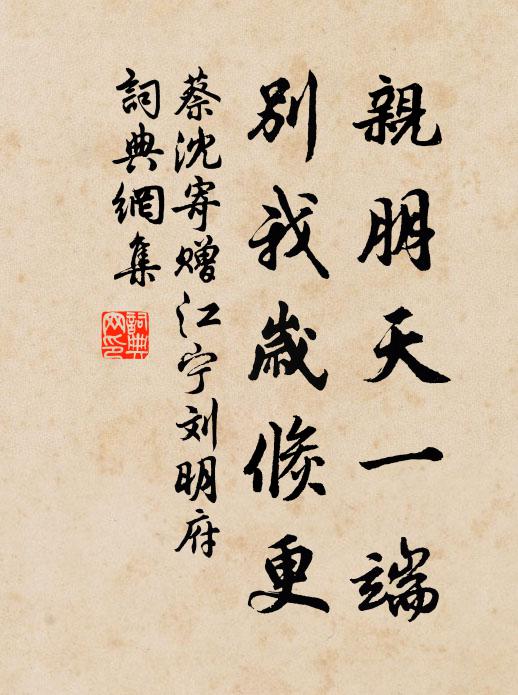 親朋天一端
別我歲倐更
蔡沈寄赠江宁刘明府
詞典網集
詞典
网印